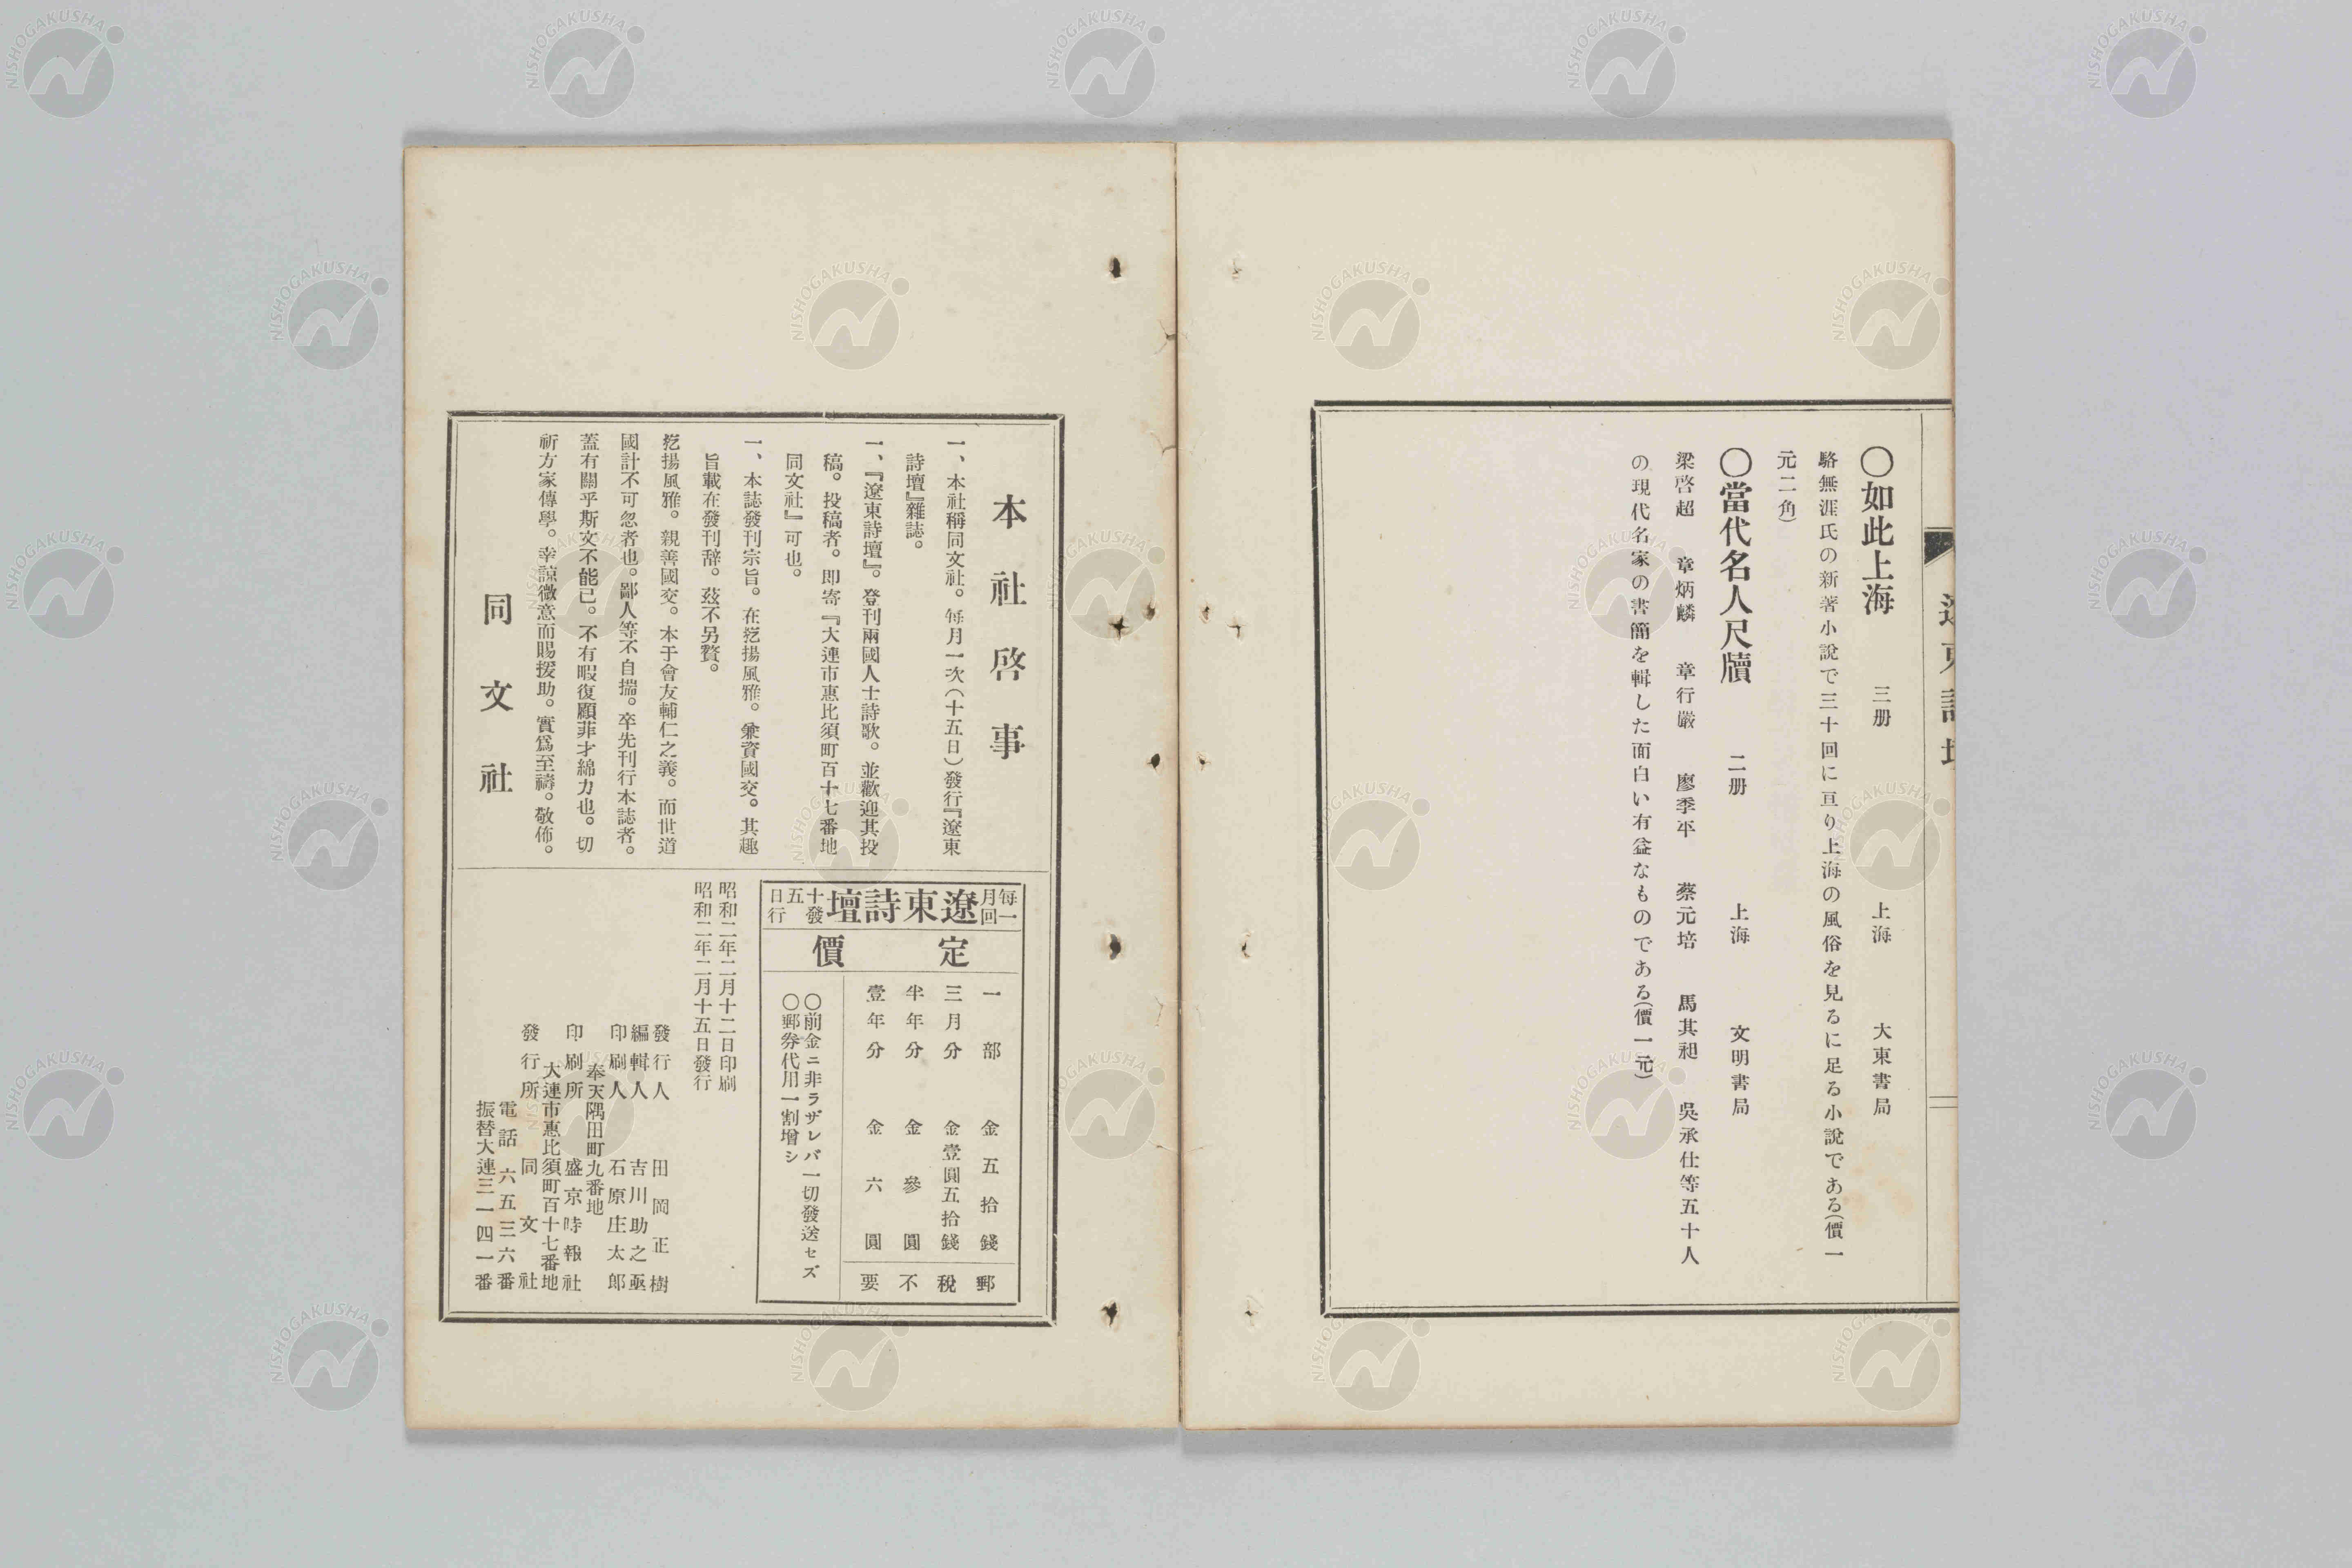 遼東詩壇
〇如此上海　三册　上海　大東書局
駱無涯氏の新著小說で三十回に亘り上海の風俗を見るに足る小說である(價一
元二角)
〇當代名人尺牘　二册　上海　文明書局
梁啓超　章炳麟　章行嚴　廖季平　蔡元培　馬其昶　吳承仕等五十人
の現代名家の書簡を輯した面白い有益なものである(價一元)
本社啓事
一、本社稱同文社。每月一次(十五日)發行『遼東
詩壇』雜誌。
一、『遼東詩壇』。登刊兩國人士詩歌。並歡迎其投
稿。投稿者。卽寄『大連市惠比須町百十七番地
同文社』可也。
一、本誌發刊宗旨。在扢揚風雅。兼資國交。其趣
旨載在發刊辞。玆不另贅。
扢揚風雅。親善國交。本于會友輔仁之義。而世道
國計不可忽者也。鄙人等不自揣。卒先刊行本誌者。
蓋有關乎斯文不能已。不有暇復顧菲才綿力也。切
祈方家傳學。幸諒微意而賜援助。實爲至禱。敬佈。
同文社
每月一回　遼東詩壇　十五日發行
定價
一部　金五拾錢
三月分　金壹圓五拾錢
半年分　金參圓
壹年分　金六圓
郵稅不要
〇前金ニ非ラザレバ一切發送セズ
〇郵券代用一割增シ
昭和二年二月十二日印刷
昭和二年二月十五日發行
發行人　田岡正樹
編輯人　吉川助之亟
印刷人　石原庄太郎
奉天隅田町九番地
印刷所　盛京時報社
大連市惠比須町百十七番地
發行所　同文社
電話六五三六番
振替大連三一四一番
NISHOGAKUSHA